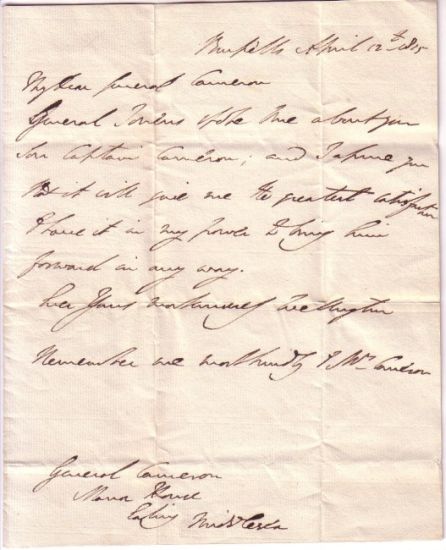 Bruxelles April 12th 1815
My Dear General Cameron
General Torrens spoke to me about your
Son Captain Cameron; and I assure you
that it will give me the greatest satisfaction
to have it in my power to bring him
forward in any way.
Ever Yours most sincerely Wellington
Remember me most kindly to Mrs Cameron
General Cameron
Manor House
Ealing Middlesex